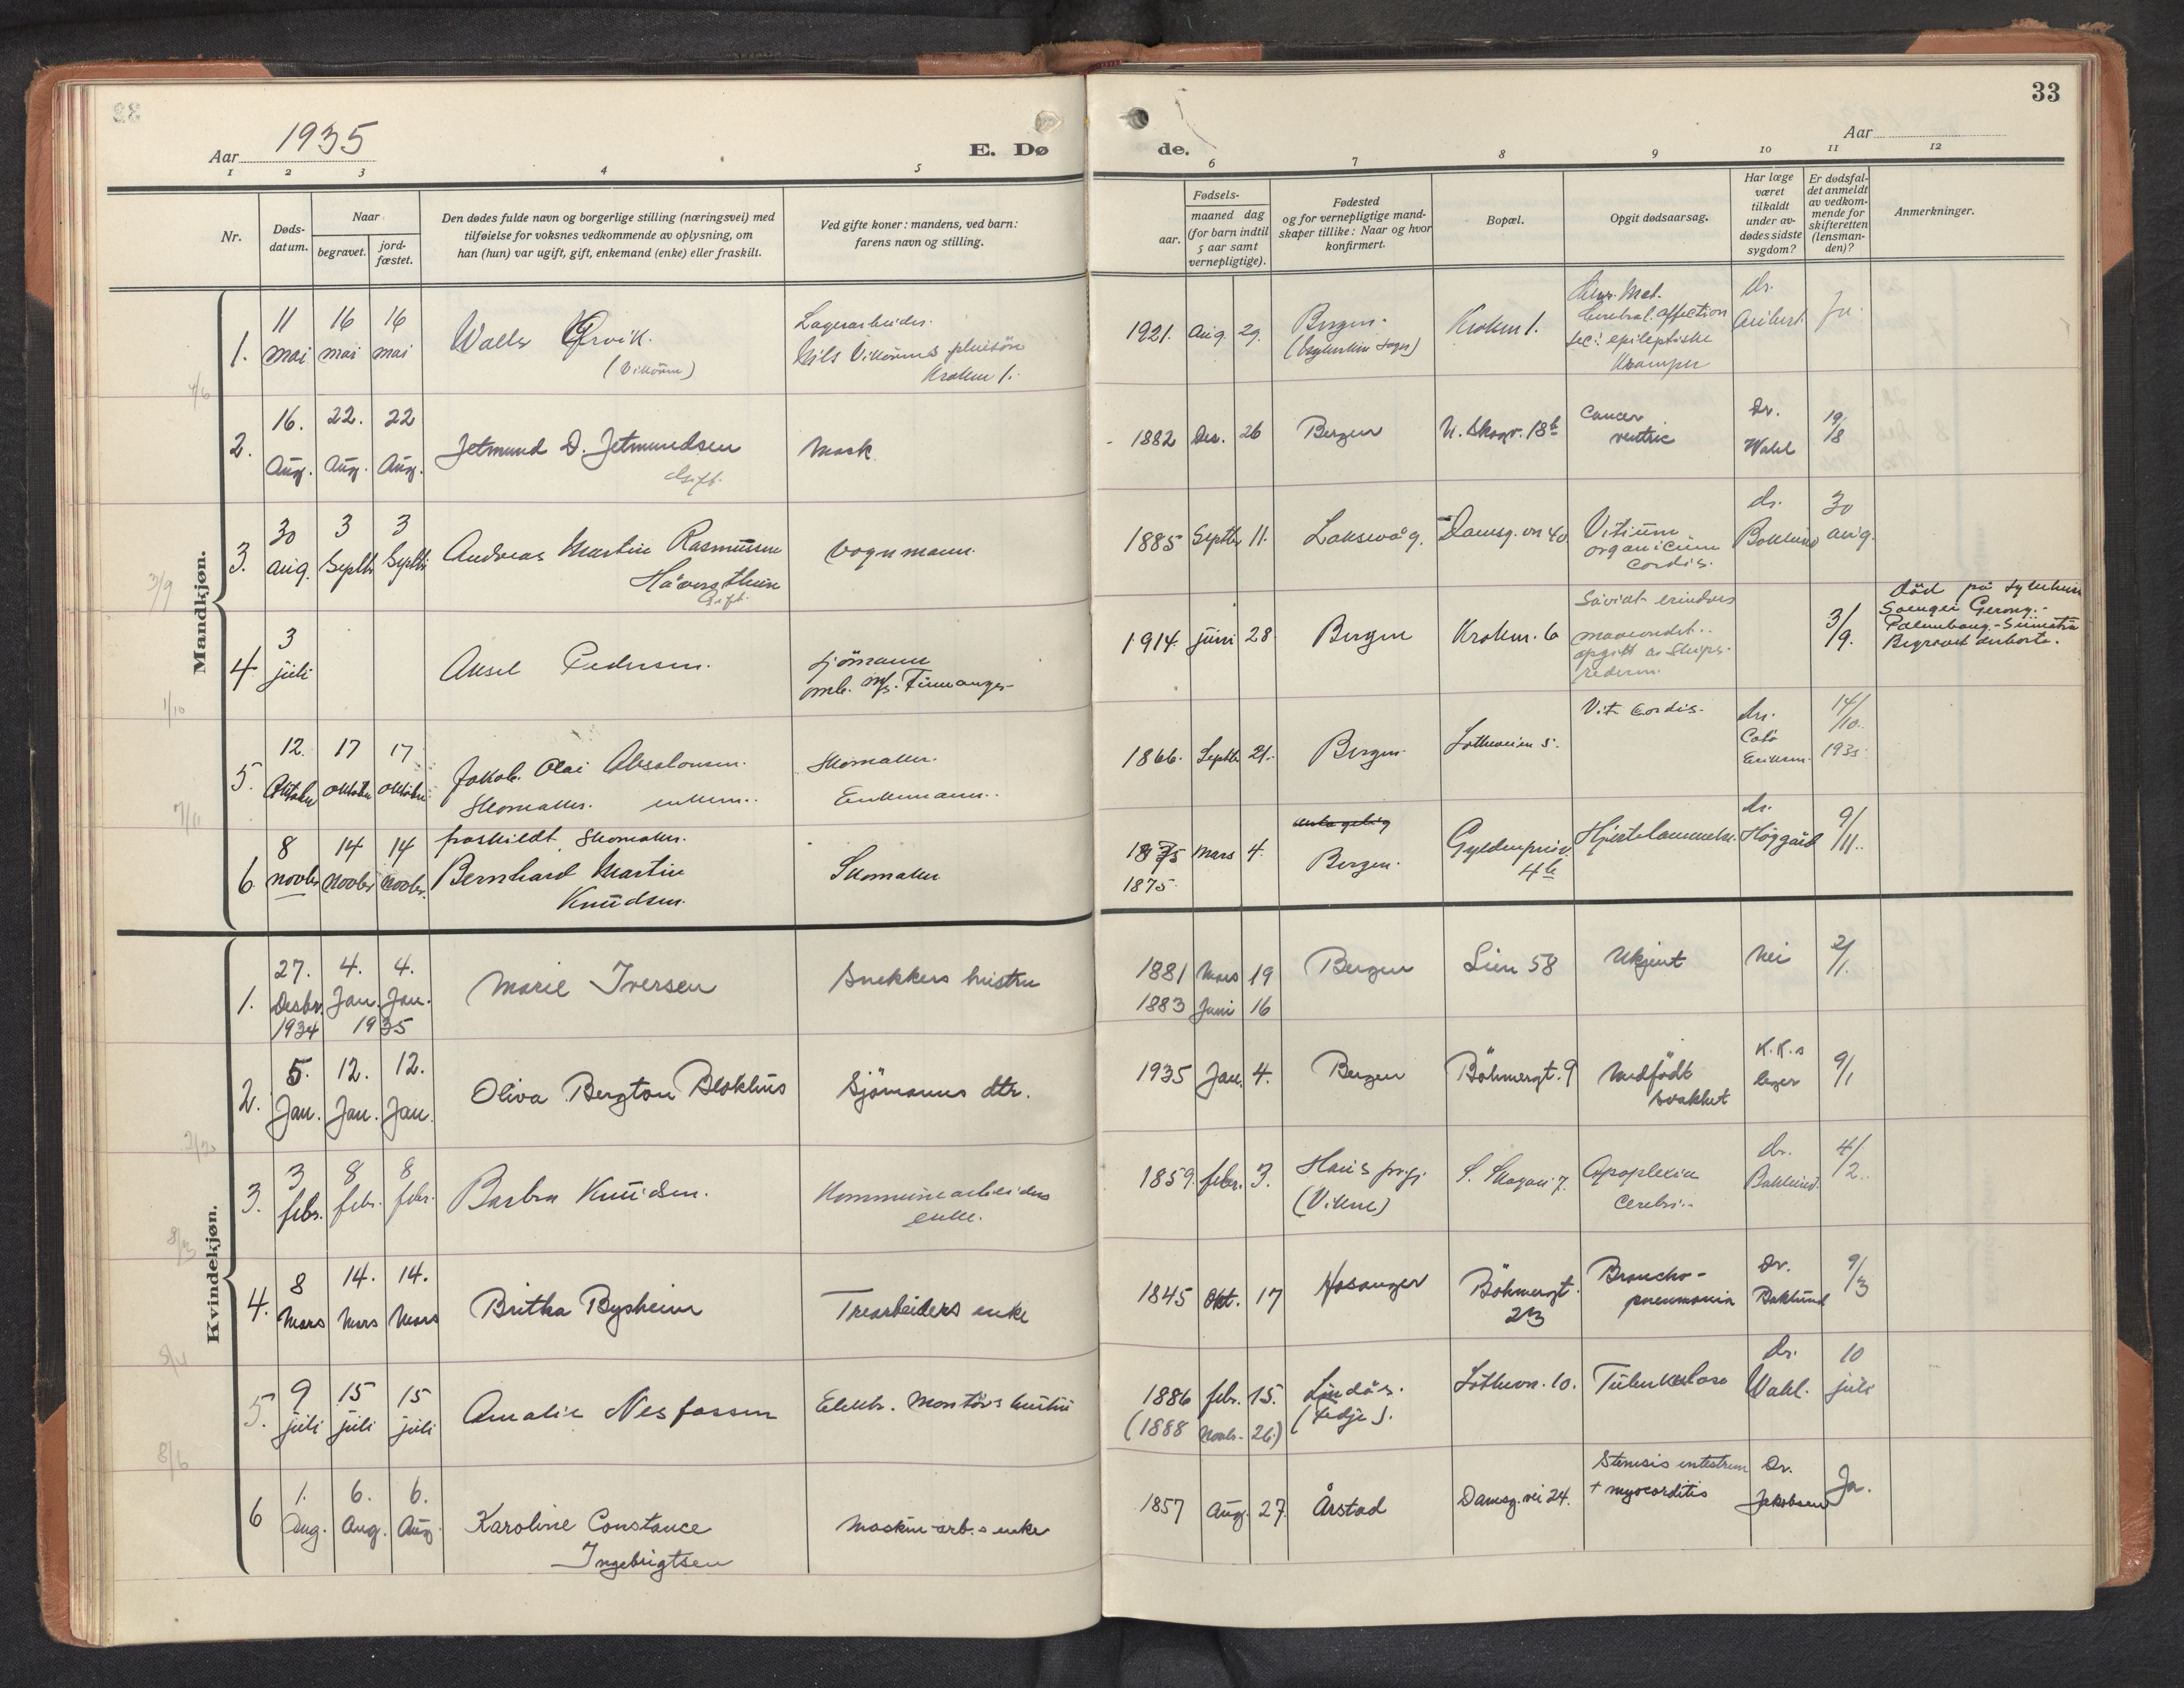 33
Aar 1935
E. Dø
de.
Aar
1 2 3 4 5
6 7 8 9 10 11 12
Nr.
Døds-
datum.
Naar
begravet.
jord-
fæstet.
Den dødes fulde navn og borgerlige stilling (næringsvei) med
tilføielse for voksnes vedkommende av oplysning, om
han (hun) var ugift, gift, enkemand (enke) eller fraskilt.
Ved gifte koner: mandens, ved barn:
farens navn og stilling.
Fødsels-
aar.
maaned dag
(for barn indtil
5 aar samt
vernepligtige).
Fødested
og for vernepligtige mand-
skaper tillike: Naar og hvor
konfirmert.
Bopæl.
Opgit dødsaarsag.
Har læge
været
tilkaldt
under av-
dødes sidste
sygdom?
Er dødsfal-
det anmeldt
av vedkom-
mende for
skifteretten
(lensman-
den)?
Anmerkninger.
Mandkjøn.
1.
11 mai
16 mai
16 mai
Lagerarbeider
Kroken 1.
1921. Aug. 29.
Bergen.
Kroken 1.
Cerebral. affection
epileptiske
Kramper
dr.
Ja.
2.
16. Aug.
22. Aug.
22 Aug.
Jetmund D. Jetmundsen
Gift.
Mask
1882 Des. 26
Bergen
N. Skogv. 18b
Cancer
ventric
Dr.
Wahl
19/8
3.
30 aug.
3 Septbr
3 Septbr
Andreas Martin Rasmussen
Gift.
Vognmann.
1885 Septbr 11.
Laksevåg.
Damsg. vn 40
Vitium
organicum
cordis.
dr.
Baklund
30 aug.
4.
3 juli
Aksel Pedersen.
sjömann
1914. juni 28.
Bergen
Krokен. 6
3/9.
död på sykehus
Palembang - Sumatra
Begravet derborte.
5.
12. Oktober
17 oktober
17 oktober
Jakob Olai Absalonsen.
Skomaker. enkem.
Skomaker.
Enkemann.
1866. Septbr 21.
Bergen.
Lotheveien 5.
Vit. Cordis.
14/10.
1935.
6.
8 novbr
14 novbr
14 novbr.
fraskildt Skomaker.
Bernhard Martin
Knudsen.
Skomaker
1875 Mars 4.
1875.
Bergen.
Hjertelammelse.
dr.
Höggård
9/11.
Kvindekjøn.
1.
27. Desbr. 1934
4. Jan.
4. Jan.
1935
Marie Iversen
Snekkers hustru
1881 Mars 19
1883 Juni 16
Bergen
Lien 58
Ukjent
Nei
2/1.
2.
5. Jan.
12. Jan.
12. Jan.
Oliva Bergton Blokhus
Sjömanns dtr.
1935 Jan. 4.
Bergen
Böhmergt. 9
Medfödt
svakhet
K.K.s
leger
9/1
3.
3 febr.
8 febr.
8 febr.
Barbra Knudsen.
Kommunearbeiders
enke.
1859. febr. 3.
Haus prgj.
(Vikne)
S. Skogvei 7.
Apoplexia
Cerebri.
dr.
Baklund.
4/2.
4.
8 Mars
14. Mars
14. Mars
Britha Bysheim
Trearbeiders enke
1845 Okt. 17
Hosanger
Böhmergt.
23
Broncho-
pneumonia
Dr.
Baklund
9/3
5.
9 juli
15 juli
15 juli
Amalie Nesfossen
Elektr. Montörs hustru
1886 febr. 15.
(1888 Novbr. 26.)
Lindås.
(Fedje).
Lothevn. 10.
Tuberkulose
dr.
Wahl.
10 juli
6
1. Aug.
6. Aug.
6. Aug.
Karoline Constance
Ingebrigtsen
Maskin-arb.s enke
1857 Aug. 27
Årstad
Damsg.vei 24.
Stenosis intestinum
+ myocarditis
Dr.
Jakobsen
Ja.